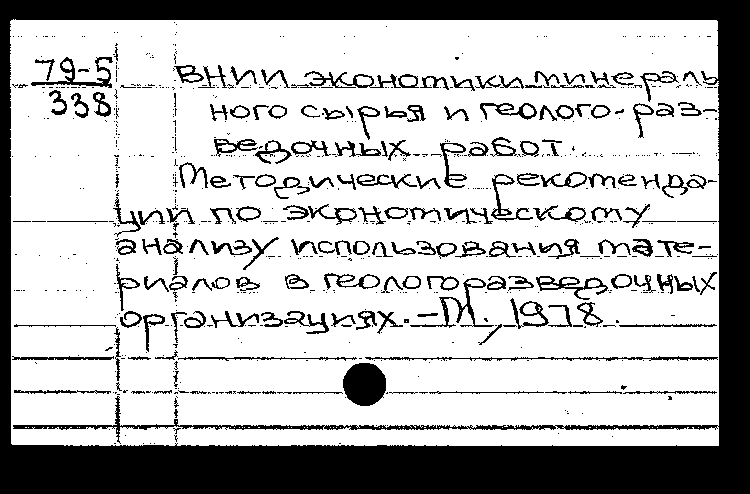 79-5
338
ВНИИ экономики минераль
ного сырья и геолого-раз-
ведочных работ.
Методические рекоменда-
ции по экономическому
анализу использования мате-
риалов в геологоразведочных
организациях. - М., 1978.